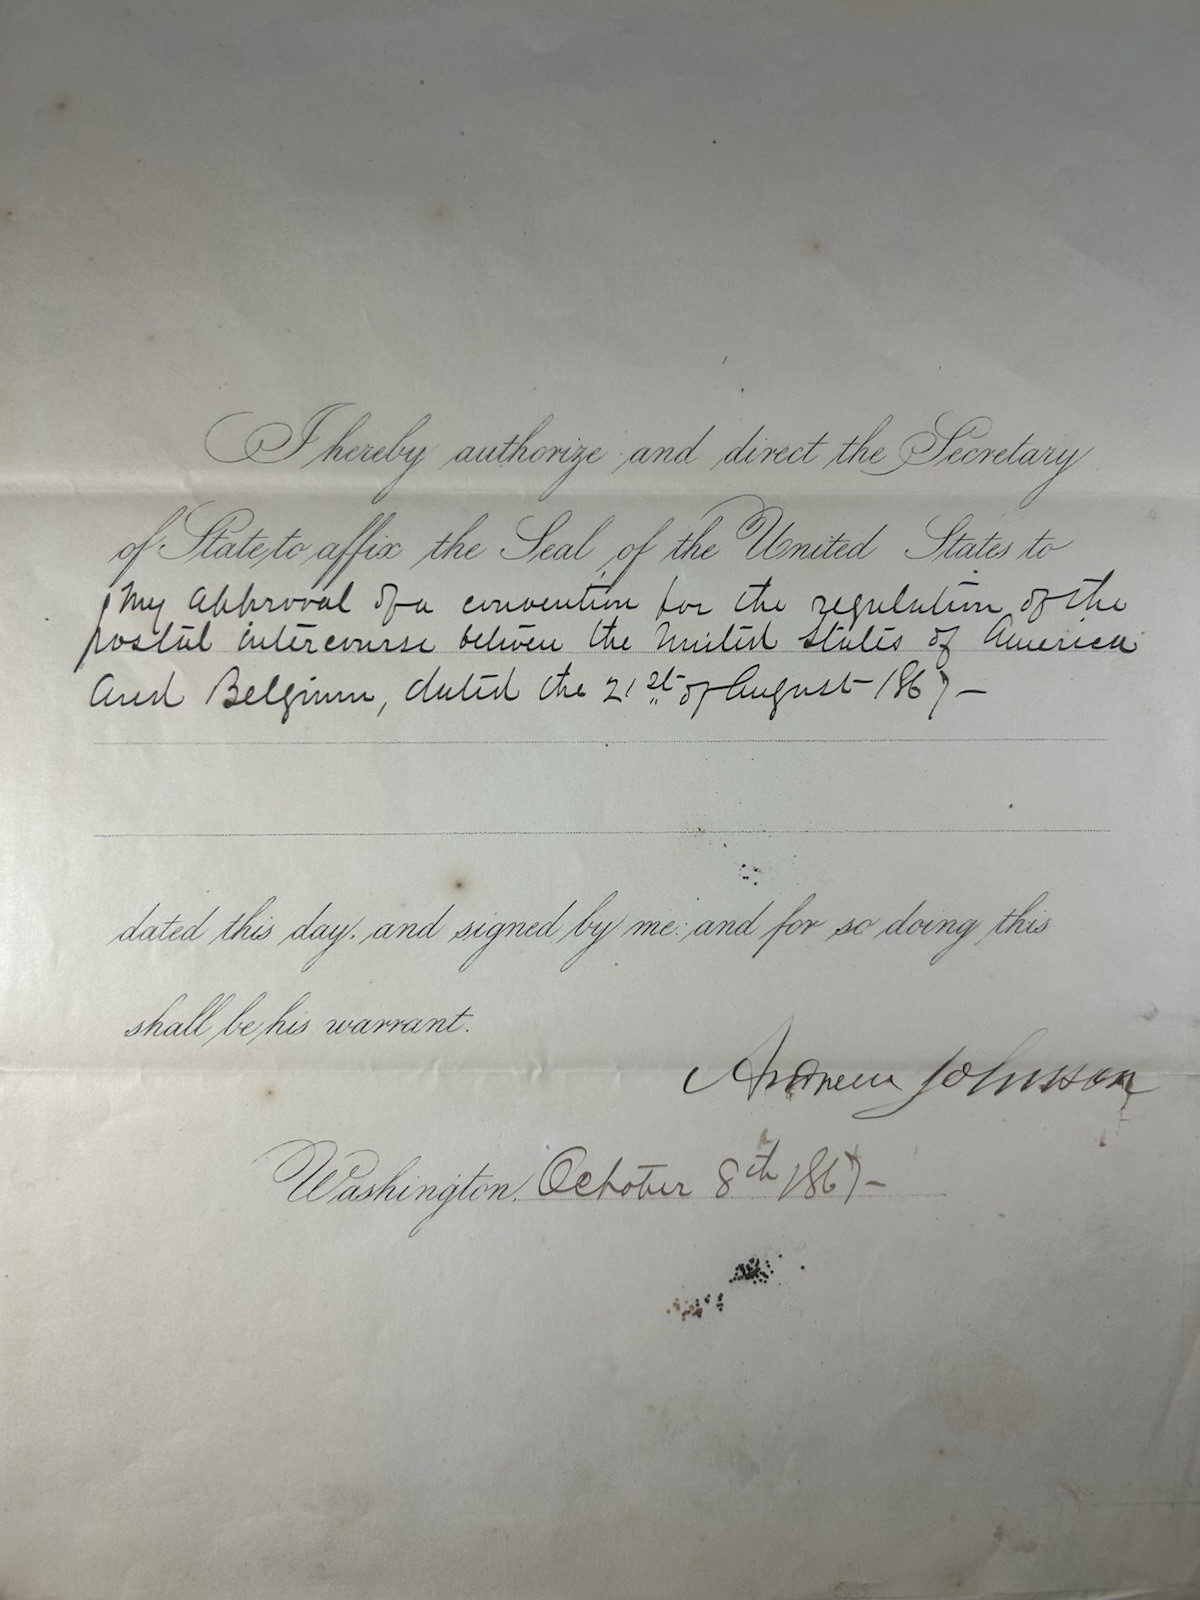 I hereby authorize and direct the Secretary
of State to affix the Seal of the United States to
my approval of a convention for the regulation of the
postal intercourse between the United States of America
and Belgium, dated the 21st of August 1867 —
dated this day, and signed by me: and for so doing this
shall be his warrant.
Andrew Johnson
Washington, October 8th 1867 —